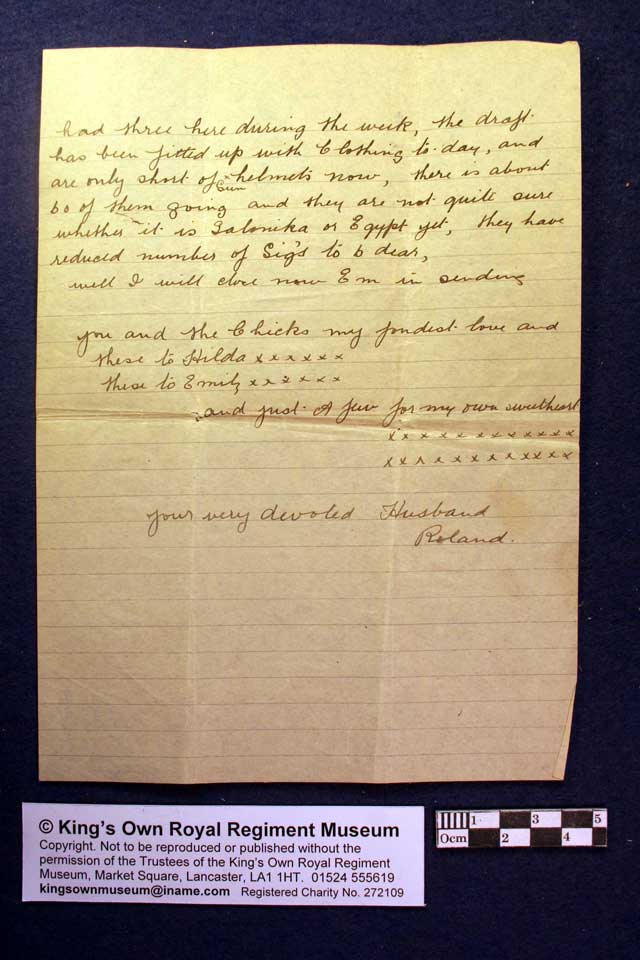 had three here during the week, the draft
has been fitted up with Clothing to-day, and
are only short of Sun helmets now, there is about
60 of them going and they are not quite sure
whether it is Salonika or Egypt yet, they have
reduced number of Sig's to 6 dear,
well I will close now Em in sending
you and the Chicks my fondest love and
these to Hilda x x x x x x
these to Emily x x x x x x
and just A few for my own sweetheart
x x x x x x x x x x x x
x x x x x x x x x x x x
your very devoted Husband
Roland.
© King's Own Royal Regiment Museum
Copyright. Not to be reproduced or published without the
permission of the Trustees of the King's Own Royal Regiment
Museum, Market Square, Lancaster, LA1 1HT. 01524 555619
kingsownmuseum@iname.com Registered Charity No. 272109
1 3 5
0cm 2 4